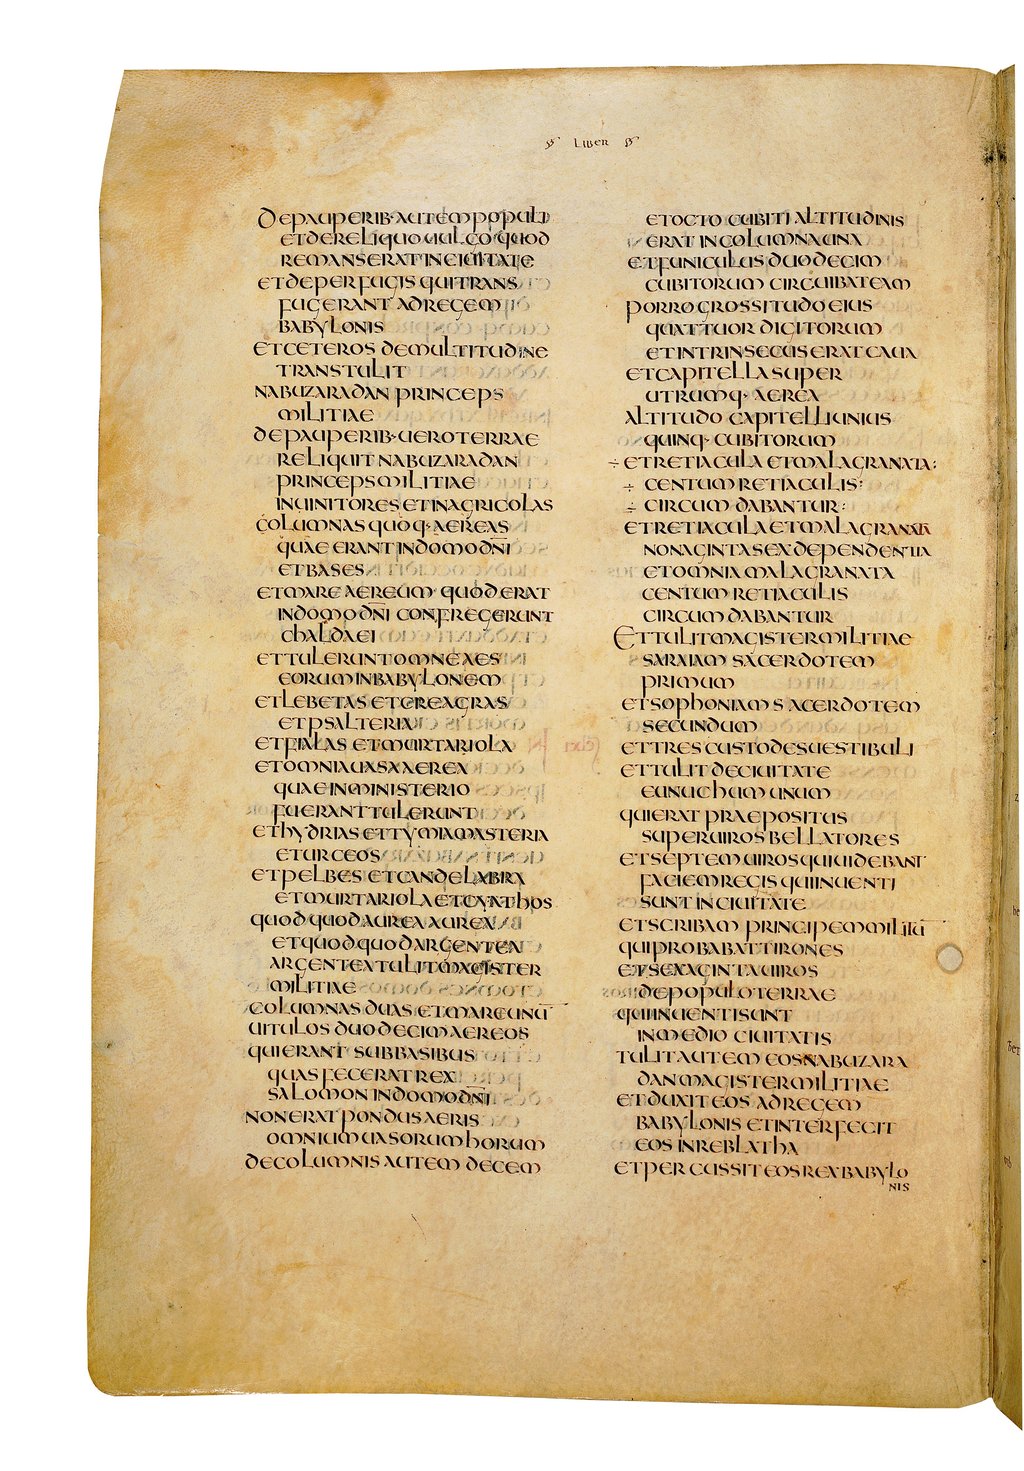 LIBER
DEPAUPERIB· AUTEM POPULI
ETDERELIQUO UULCO QUOD
REMANSERAT IN CIUITATE
ETDEPERFUGIS QUITRANS
FUGERANT ADREGEM
BABYLONIS
ETCETEROS DEMULTITUDINE
TRANSTULIT
NABUZARADAN PRINCEPS
MILITIAE
DEPAUPERIB· UEROTERRAE
RELIQUIT NABUZARADAN
PRINCEPSMILITIAE
INUINITORES ETINAGRICOLAS
COLUMNAS QUOQ· AEREAS
QUAE ERANT INDOMO DN̄I
ETBASES
ETMARE AEREUM· QUODERAT
INDOMO DN̄I CONFREGERUNT
CHALDAEI
ETTULERUNTOMNEAES
EORUM INBABYLONEM
ETLEBETAS ETCREAGRAS
ETPSALTERIA
ETFIALAS ETMURTARIOLA
ETOMNIAUASAAEREA
QUAE INMINISTERIO
FUERANTTULERUNT
ETHYDRIAS ETTYMIAMASTERIA
ETURCEOS
ETPELBES ETCANDELABRA
ETMURTARIOLA ETCYATHOS
QUODQUODAUREA AUREA
ETQUODQUODARGENTEA
ARGENTEATULITMAGISTER
MILITIAE
COLUMNAS DUAS ETMAREUNŪ
UITULOS DUODECIM AEREOS
QUIERANT SUBBASIBUS
QUAS FECERATREX
SALOMON INDOMODN̄I
NONERAT PONDUSAERIS
OMNIUMUASORUMHORUM
DECOLUMNIS AUTEM DECEM
ETOCTO CUBITI ALTITUDINIS
ERAT INCOLUMNAUNA
ETFUNICULUS DUODECIM
CUBITORUM CIRCUIBATEAM
PORROGROSSITUDO EIUS
QUATTUOR DIGITORUM
ETINTRINSECUS ERAT CAUA
ETCAPITELLASUPER
UTRUMQ· AEREA
ALTITUDO CAPITELLIUNIUS
QUINQ· CUBITORUM
÷ETRETIACULA ETMALAGRANATA:
÷ CENTUM RETIACULIS:
÷ CIRCUM DABANTUR:
ETRETIACULA ETMALAGRANATA
NONAGINTASEX DEPENDENTIA
ETOMNIA MALAGRANATA
CENTUM RETIACULIS
CIRCUM DABANTUR
ETTULITMAGISTERMILITIAE
SARAIAM SACERDOTEM
PRIMUM
ETSOPHONIAM SACERDOTEM
SECUNDUM
ETTRES CUSTODESUESTIBULI
ETTULIT DECIUITATE
EUNUCHUM UNUM
QUIERAT PRAEPOSITUS
SUPERUIROS BELLATORES
ETSEPTEM UIROS QUIUIDEBANT
FACIEMREGIS QUIINUENTI
SUNT IN CIUITATE
ETSCRIBAM PRINCIPEMMILITŪ
QUIPROBABATTIRONES
ETSEXAGINTAUIROS
DEPOPULOTERRAE
QUIINUENTISUNT
INMEDIO CIUITATIS
TULITAUTEM EOSNABUZARA
DANMAGISTERMILITIAE
ETDUXITEOS ADREGEM
BABYLONIS ETINTERFECIT
EOS INREBLATHA
ETPERCUSSITEOSREXBABYLO
NIS